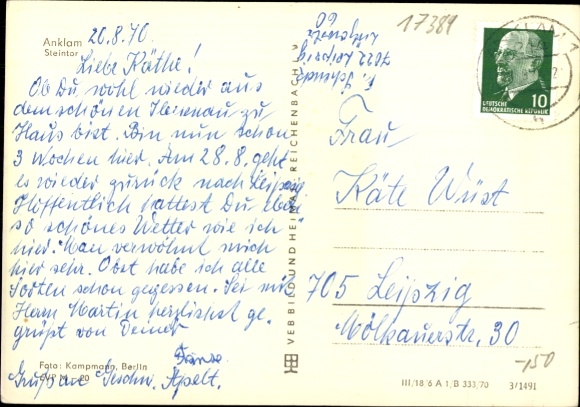 20.8.70.
Anklam
Steintor
Liebe Käthe!
Ob Du wohl wieder aus
dem schönen zu
Haus bist. Bin nun schon
3 Wochen hier. Am 28.8. geht
es wieder zurück nach Leipzig
Hoffentlich hattest Du eben
so schönes Wetter wie ich
hier. Man verwöhnt mich
hier sehr. Obst habe ich alle
Sorten schon gegessen. Sei mit
Herrn Martin herzlichst ge-
grüßt von Deiner
Foto: Kampmann, Berlin
Gruß an Geschw. Apelt.
VEB BILD UND HEIMAT REICHENBACH I. V.
7022 Leipzig
60
17389
ANKLAM 1
10
DEUTSCHE
DEMOKRATISCHE REPUBLIK
Frau
Käte Wüst
705 Leipzig
Mölkauerstr. 30
-150
III/18/6 A 1/B 333/70 3/1491